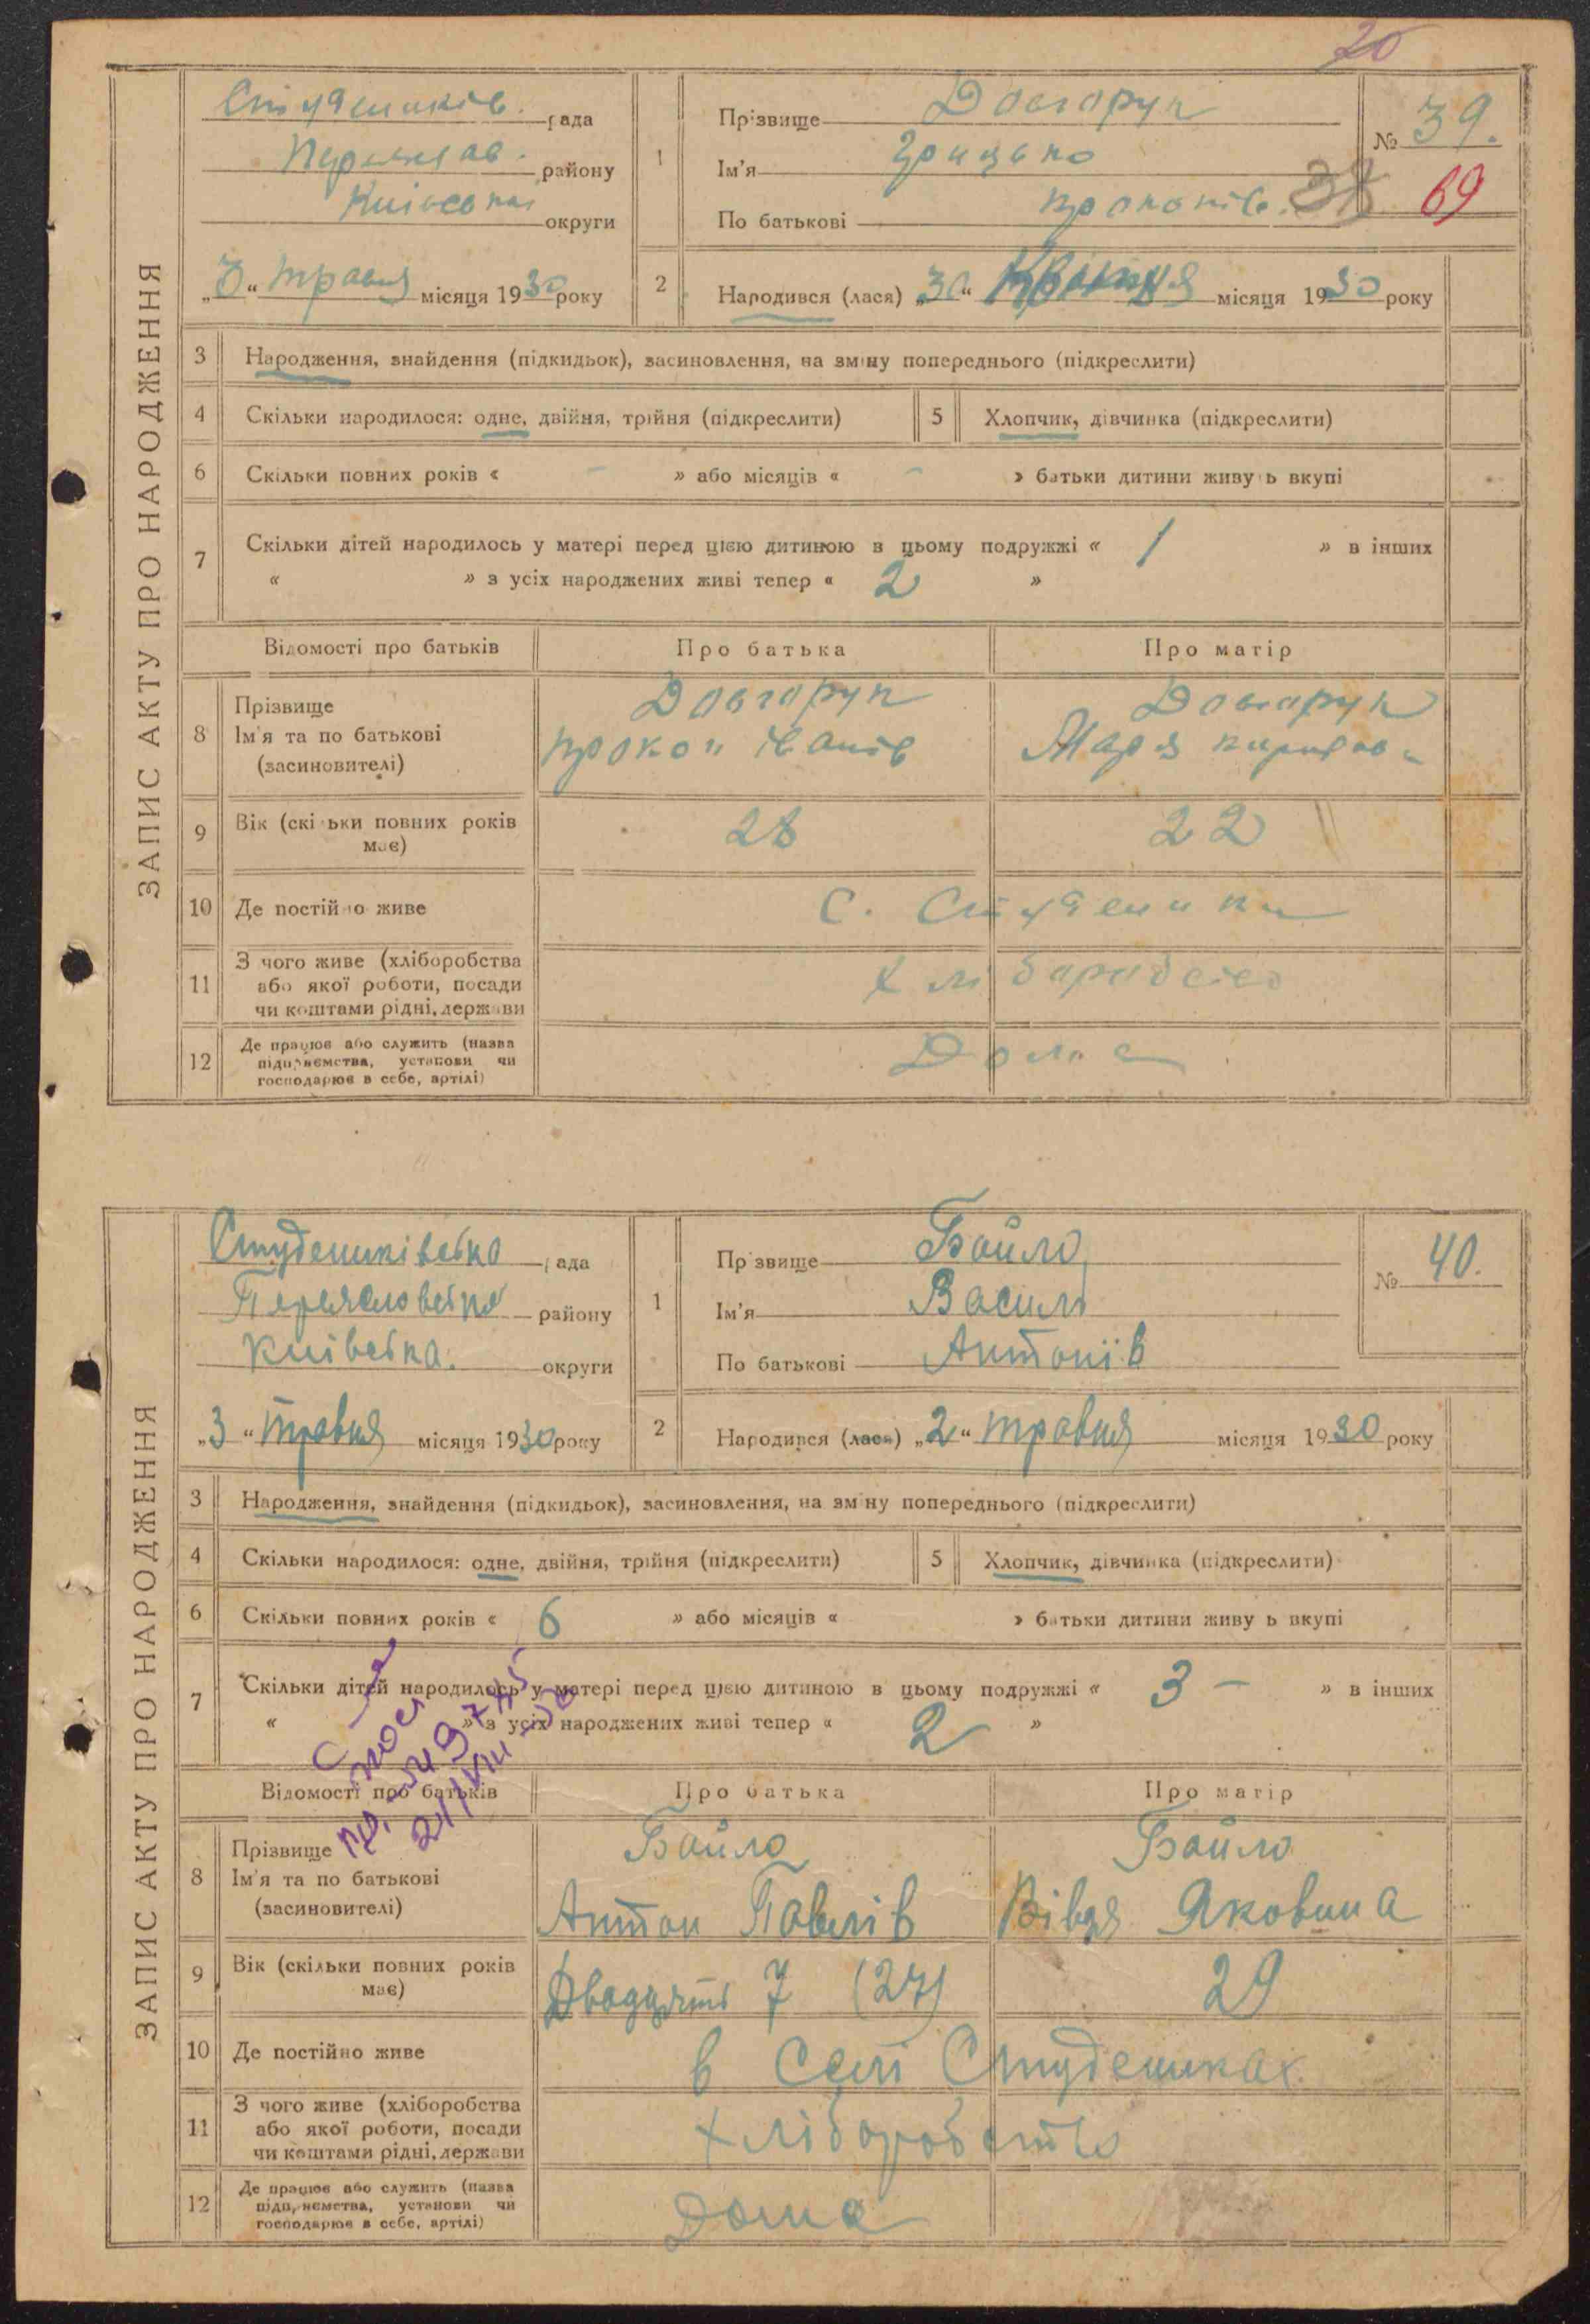 20
ЗАПИС АКТУ ПРО НАРОДЖЕННЯ
Студеників. рада
Переяслав. району
Київської округи
„3“ травня місяця 1930 року
1
Прізвище Довгорук
Ім'я Грицько
По батькові Прокопів.
№ 39.
38 69
2
Народився (лася) „30“ Квітня місяця 1930 року
3 Народження, знайдення (підкидьок), засиновлення, на зміну попереднього (підкреслити)
4 Скільки народилося: одне, двійня, трійня (підкреслити) 5 Хлопчик, дівчинка (підкреслити)
6 Скільки повних років « – » або місяців « – » батьки дитини живуть вкупі
7 Скільки дітей народилось у матері перед цією дитиною в цьому подружжі « 1 » в інших
« » з усіх народжених живі тепер « 2 »
Відомості про батьків Про батька Про матір
8 Прізвище
Ім'я та по батькові
(засиновителі)
Довгорук
Прокоп Іванів
Довгорук
Марія
9 Вік (скільки повних років має) 28 22
10 Де постійно живе с. Студеники
11 З чого живе (хліборобства
або якої роботи, посади
чи коштами рідні, держави
Хліборобство
12 Де працює або служить (назва
підприємства, установи чи
господарює в себе, артілі)
Дома
ЗАПИС АКТУ ПРО НАРОДЖЕННЯ
Студениківська рада
Переяславська району
Київська. округи
„3“ травня місяця 1930 року
1
Прізвище Байло
Ім'я Василь
По батькові Антонів
№ 40.
2
Народився (лася) „2“ травня місяця 1930 року
3 Народження, знайдення (підкидьок), засиновлення, на зміну попереднього (підкреслити)
4 Скільки народилося: одне, двійня, трійня (підкреслити) 5 Хлопчик, дівчинка (підкреслити)
6 Скільки повних років « 6 » або місяців « » батьки дитини живуть вкупі
7 Скільки дітей народилось у матері перед цією дитиною в цьому подружжі « 3 – » в інших
« » з усіх народжених живі тепер « 2 »
Відомості про батьків Про батька Про матір
8 Прізвище
Ім'я та по батькові
(засиновителі)
Байло
Антон Павлів
Байло
Вівдя Яковина
9 Вік (скільки повних років має) Двадцять 7 (27) 29
10 Де постійно живе в селі Студениках.
11 З чого живе (хліборобства
або якої роботи, посади
чи коштами рідні, держави
Хліборобство
12 Де працює або служить (назва
підприємства, установи чи
господарює в себе, артілі)
Дома